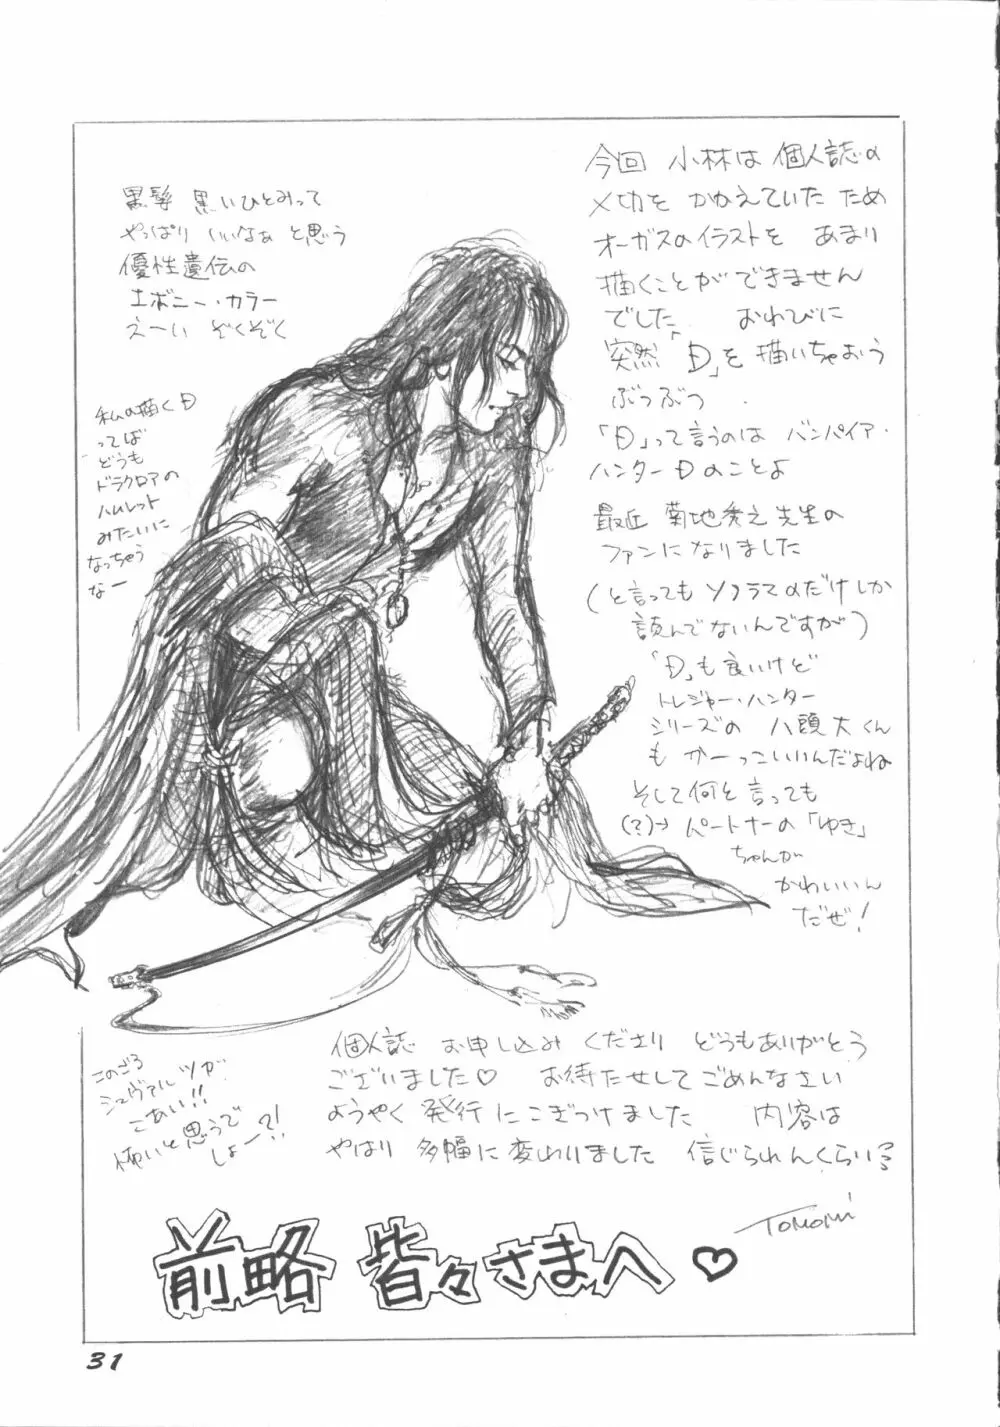 今回 小林は 個人誌の
〆切を かかえていた ため
オーガスのイラストを あまり
描くことが できません
でした。 おわびに
突然「D」を 描いちゃおう
ぶつぶつ
「D」って言うのは バンパイア・
ハンターDのことよ
最近 菊地秀之先生の
ファンになりました
(と言っても ソノラマのだけしか
読んでないんですが)
「D」も良いけど
トレジャー・ハンター
シリーズの 八頭大くん
も かーっこいいんだよね
そして何と言っても
(?)→ パートナーの「ゆき」
ちゃんが
かわいいん
だぜ!
黒髪 黒いひとみって
やっぱり いいなぁ と思う
優性遺伝の
エボニー・カラー
えーい ぞくぞく
私の描くD
ってば
どうも
ドラクロアの
ハムレット
みたいに
なっちゃう
なー
個人誌 お申し込み くださり どうもありがとう
ございました♡ お待たせして ごめんなさい
ようやく 発行に こぎつけました 内容は
やはり 多幅に 変わりました 信じられんくらい
このごろ
シュヴァルツが
こあい!!
怖いと思うで
しょー?!
Tomomi
前略 皆々さまへ ♡
31